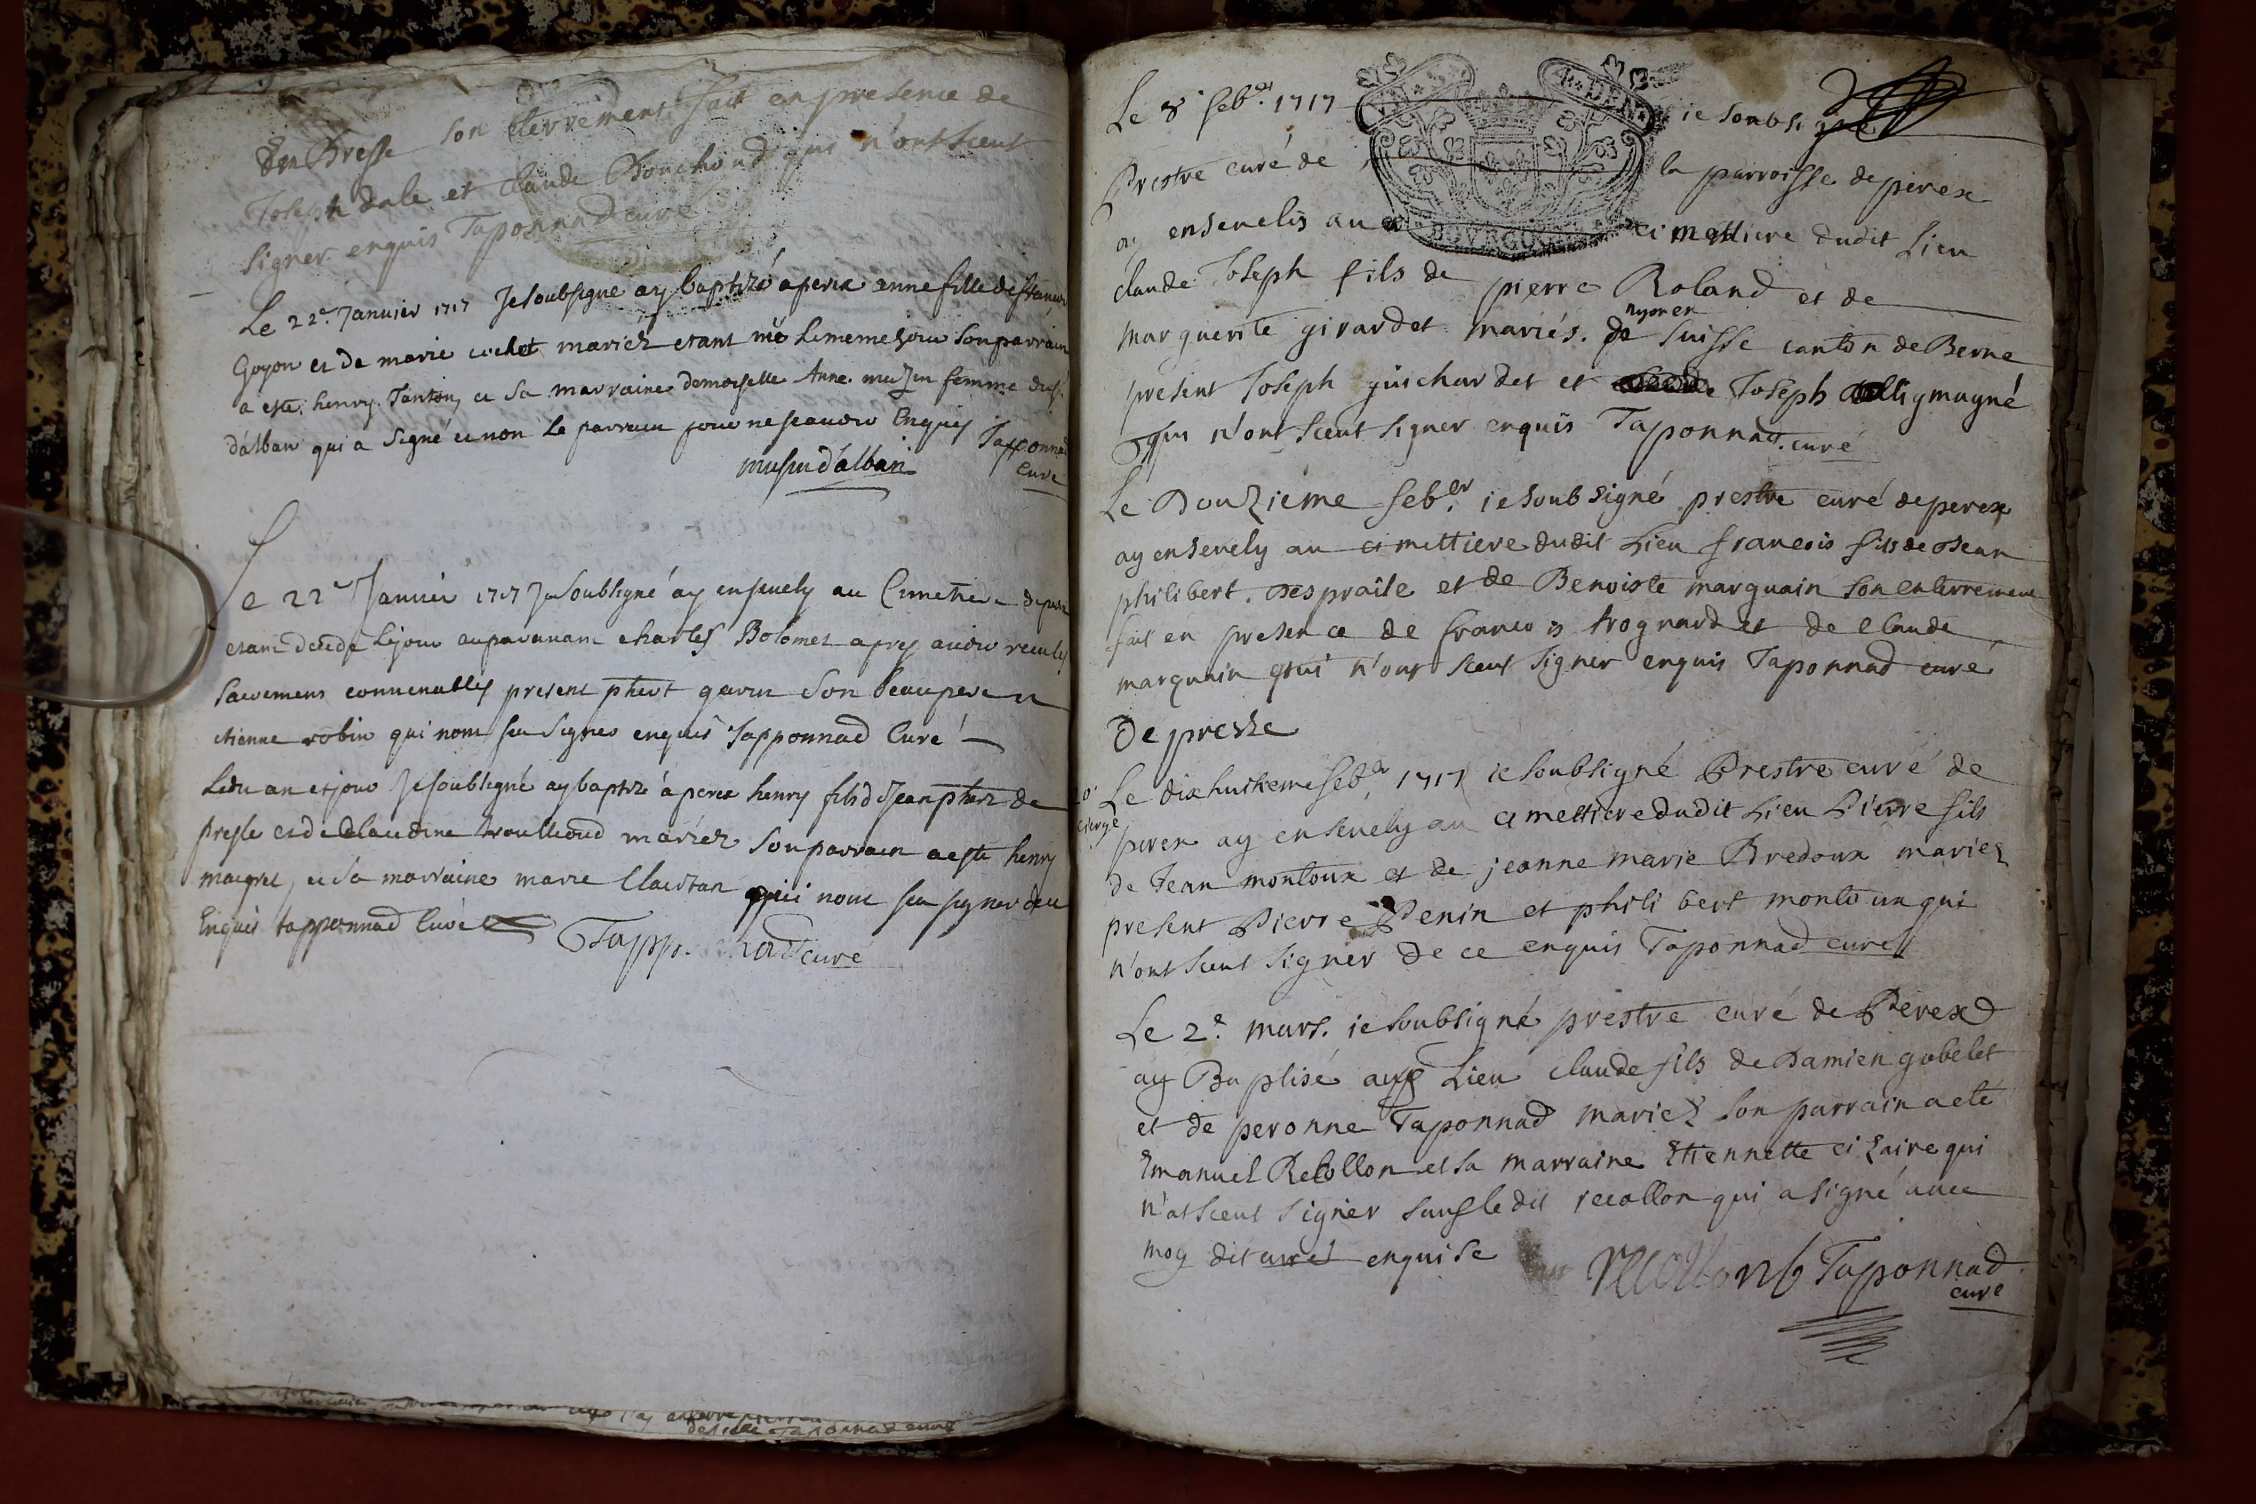 En Bresse son Eterrement fait en presence de
Joseph dale et Claude Bouchoud qui n'ont sceut
signer enquis Taponnad curé
Le 22e. Janvier 1717 Je soubsigné ay baptizé a perex anne fille de
Goyon et de marie cochet mariéz etant née le meme jour son parrain
a esté henry Tanton, et sa marraine demoiselle Anne muzin femme du sr.
d'alban qui a signé et non le parrain pour ne scavoir Enquis Tapponnad
muzin d'alban curé
Le 22e Janvier 1717 Je soubsigné ay ensevely au Cimetiere de perex
etant decedé le jour auparavant charles Bolomet apres avoir receu les
sacremens convenables present phert gavin son beaupere et
etienne robin qui n'ont seu signer enquis Tapponnad Curé
Ledit an et jour Je soubsigné ay baptizé à perex henry fils d Jean phert de
presle et de Claudine trouilloud mariéz son parrain a esté henry
maigret, et sa marraine marie Clastan qui n'ont seu signer de ce
Enquis tapponnad Curé
Tapponnad curé
Le 8 feb.er 1717 ie soubsigné
Prestre curé de la parroisse de perex
ay ensevelis au cimettiere dudit Lieu
claude Joseph fils de pierre Roland et de
Marguerite girardet mariés. de nyon en Suisse canton de Berne
present Joseph guichardet et Joseph alligmagné
qui n'ont sceut signer enquis Taponnad. curé
Le Douzieme feb.er ie soubsigné prestre curé de perex
ay ensevely au cimettiere dudit Lieu francois fils de Jean
philibert. Despraile et de Benoiste marguain son enterrement
fait en presence de francois trognard et de Claude
marguain qui n'ont sceut signer enquis Taponnad curé
De presle
Le dixhuitieme feb.er 1717 ie soubsigné Prestre curé de
perex ay ensevely au cimettiere dudit Lieu Pierre fils
de Jean montoux et de jeanne marie Bredoux mariez
present Pierre Penin et philibert montoux qui
n'ont sceut signer de ce enquis Taponnad curé
Le 2e. mars. ie soubsigné prestre curé de Perex
ay Baptisé audit Lieu claude fils de Damien gobelet
et de peronne Taponnad mariez son parrain a eté
Emanuel Recollon et sa marraine Etiennette cizaire qui
n'at sceut signer sauf le dit recollon qui a signé avec
moy dit curé enquise
recollon Taponnad
curé